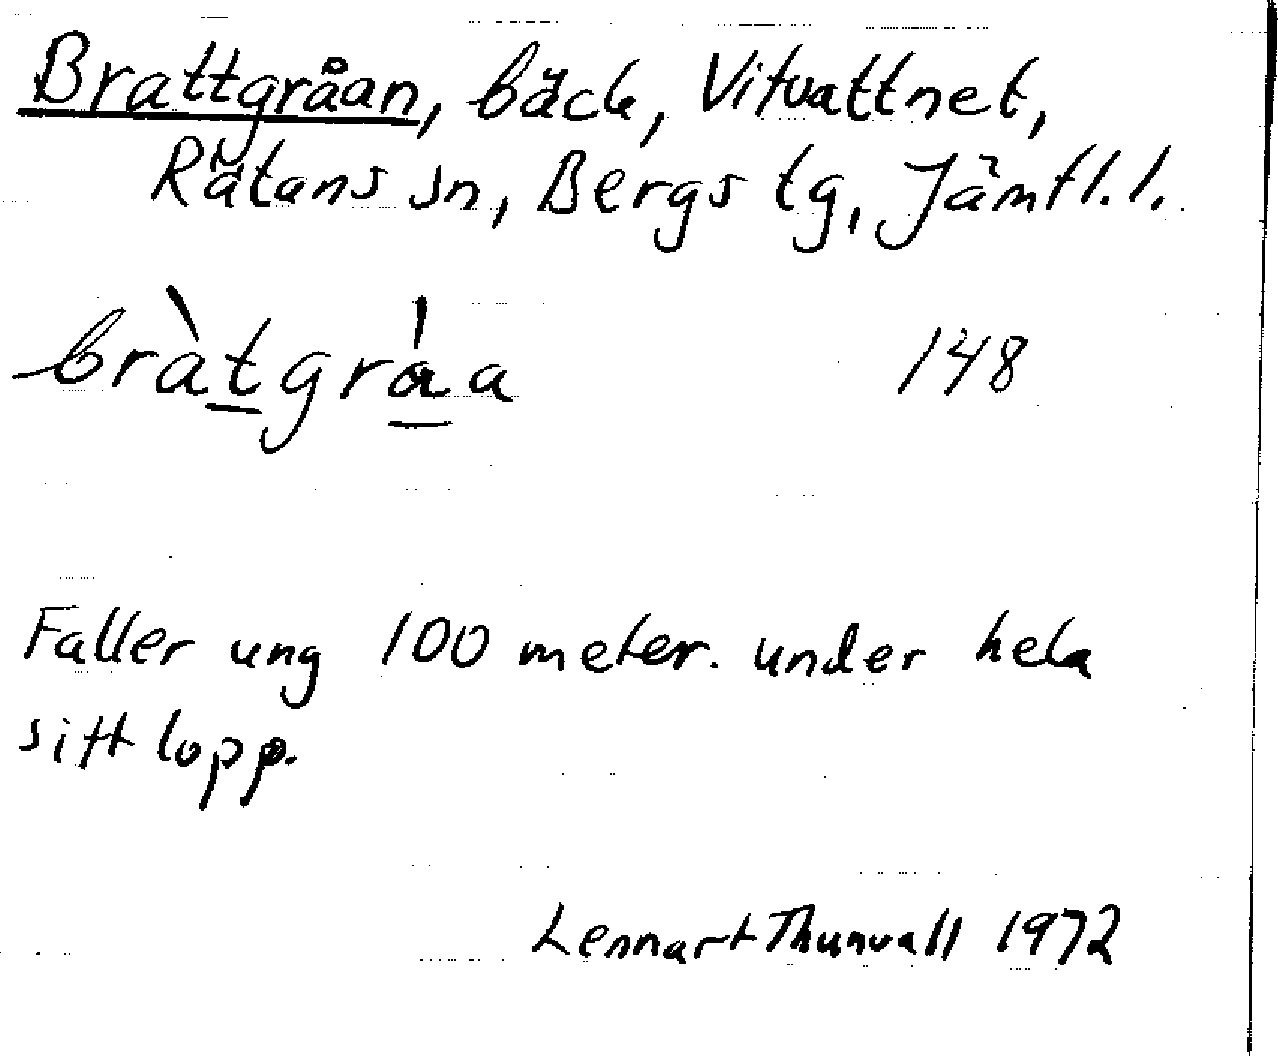 Brattgråan, bäck, Vitvattnet,
Rätans sn, Bergs tg, Jämtl. l.
bràt̲grá̲a 148
Faller ung 100 meter. under hela
sitt lopp.
Lennart Thunvall 1972